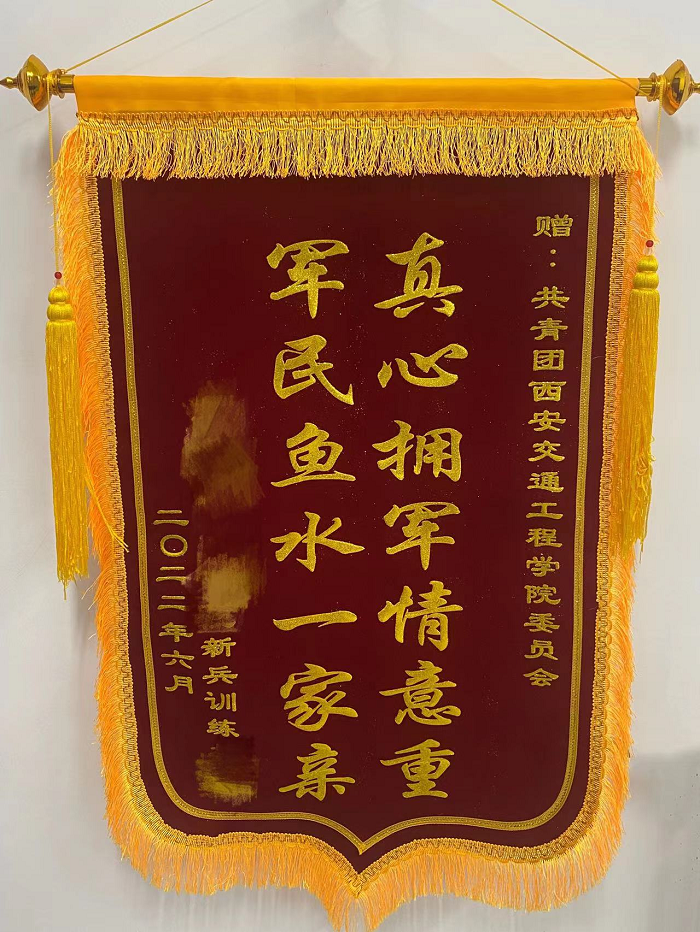 赠：共青团西安交通工程学院委员会
真心拥军情意重
军民鱼水一家亲
新兵训练
二〇二二年六月